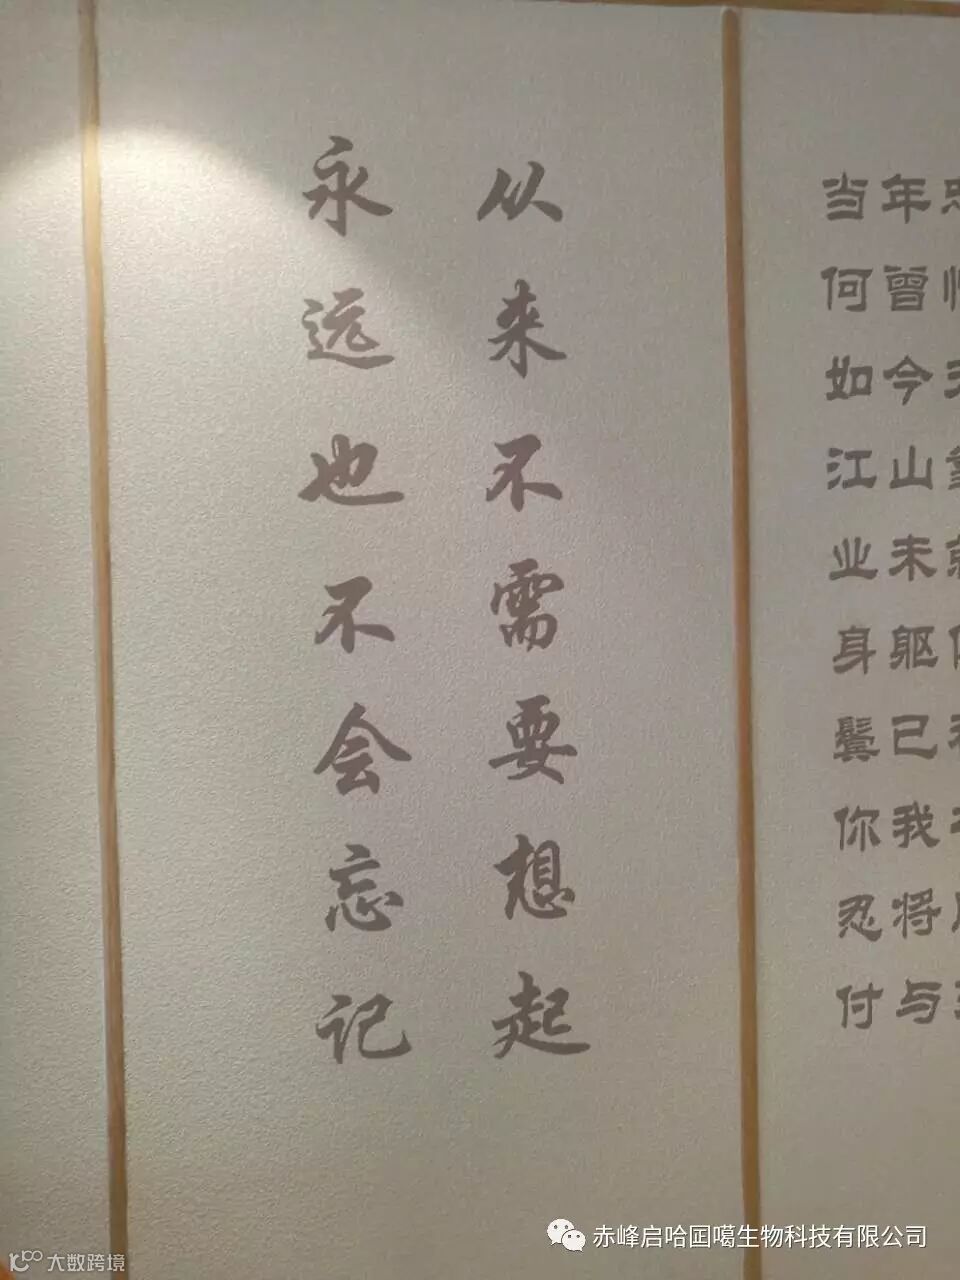 从来不需要想起
永远也不会忘记
当年忠
何曾
如今
江山靠
业未就
身躯
鬓已
你我
忍将
付与
赤峰启哈囸噶生物科技有限公司
大数跨境